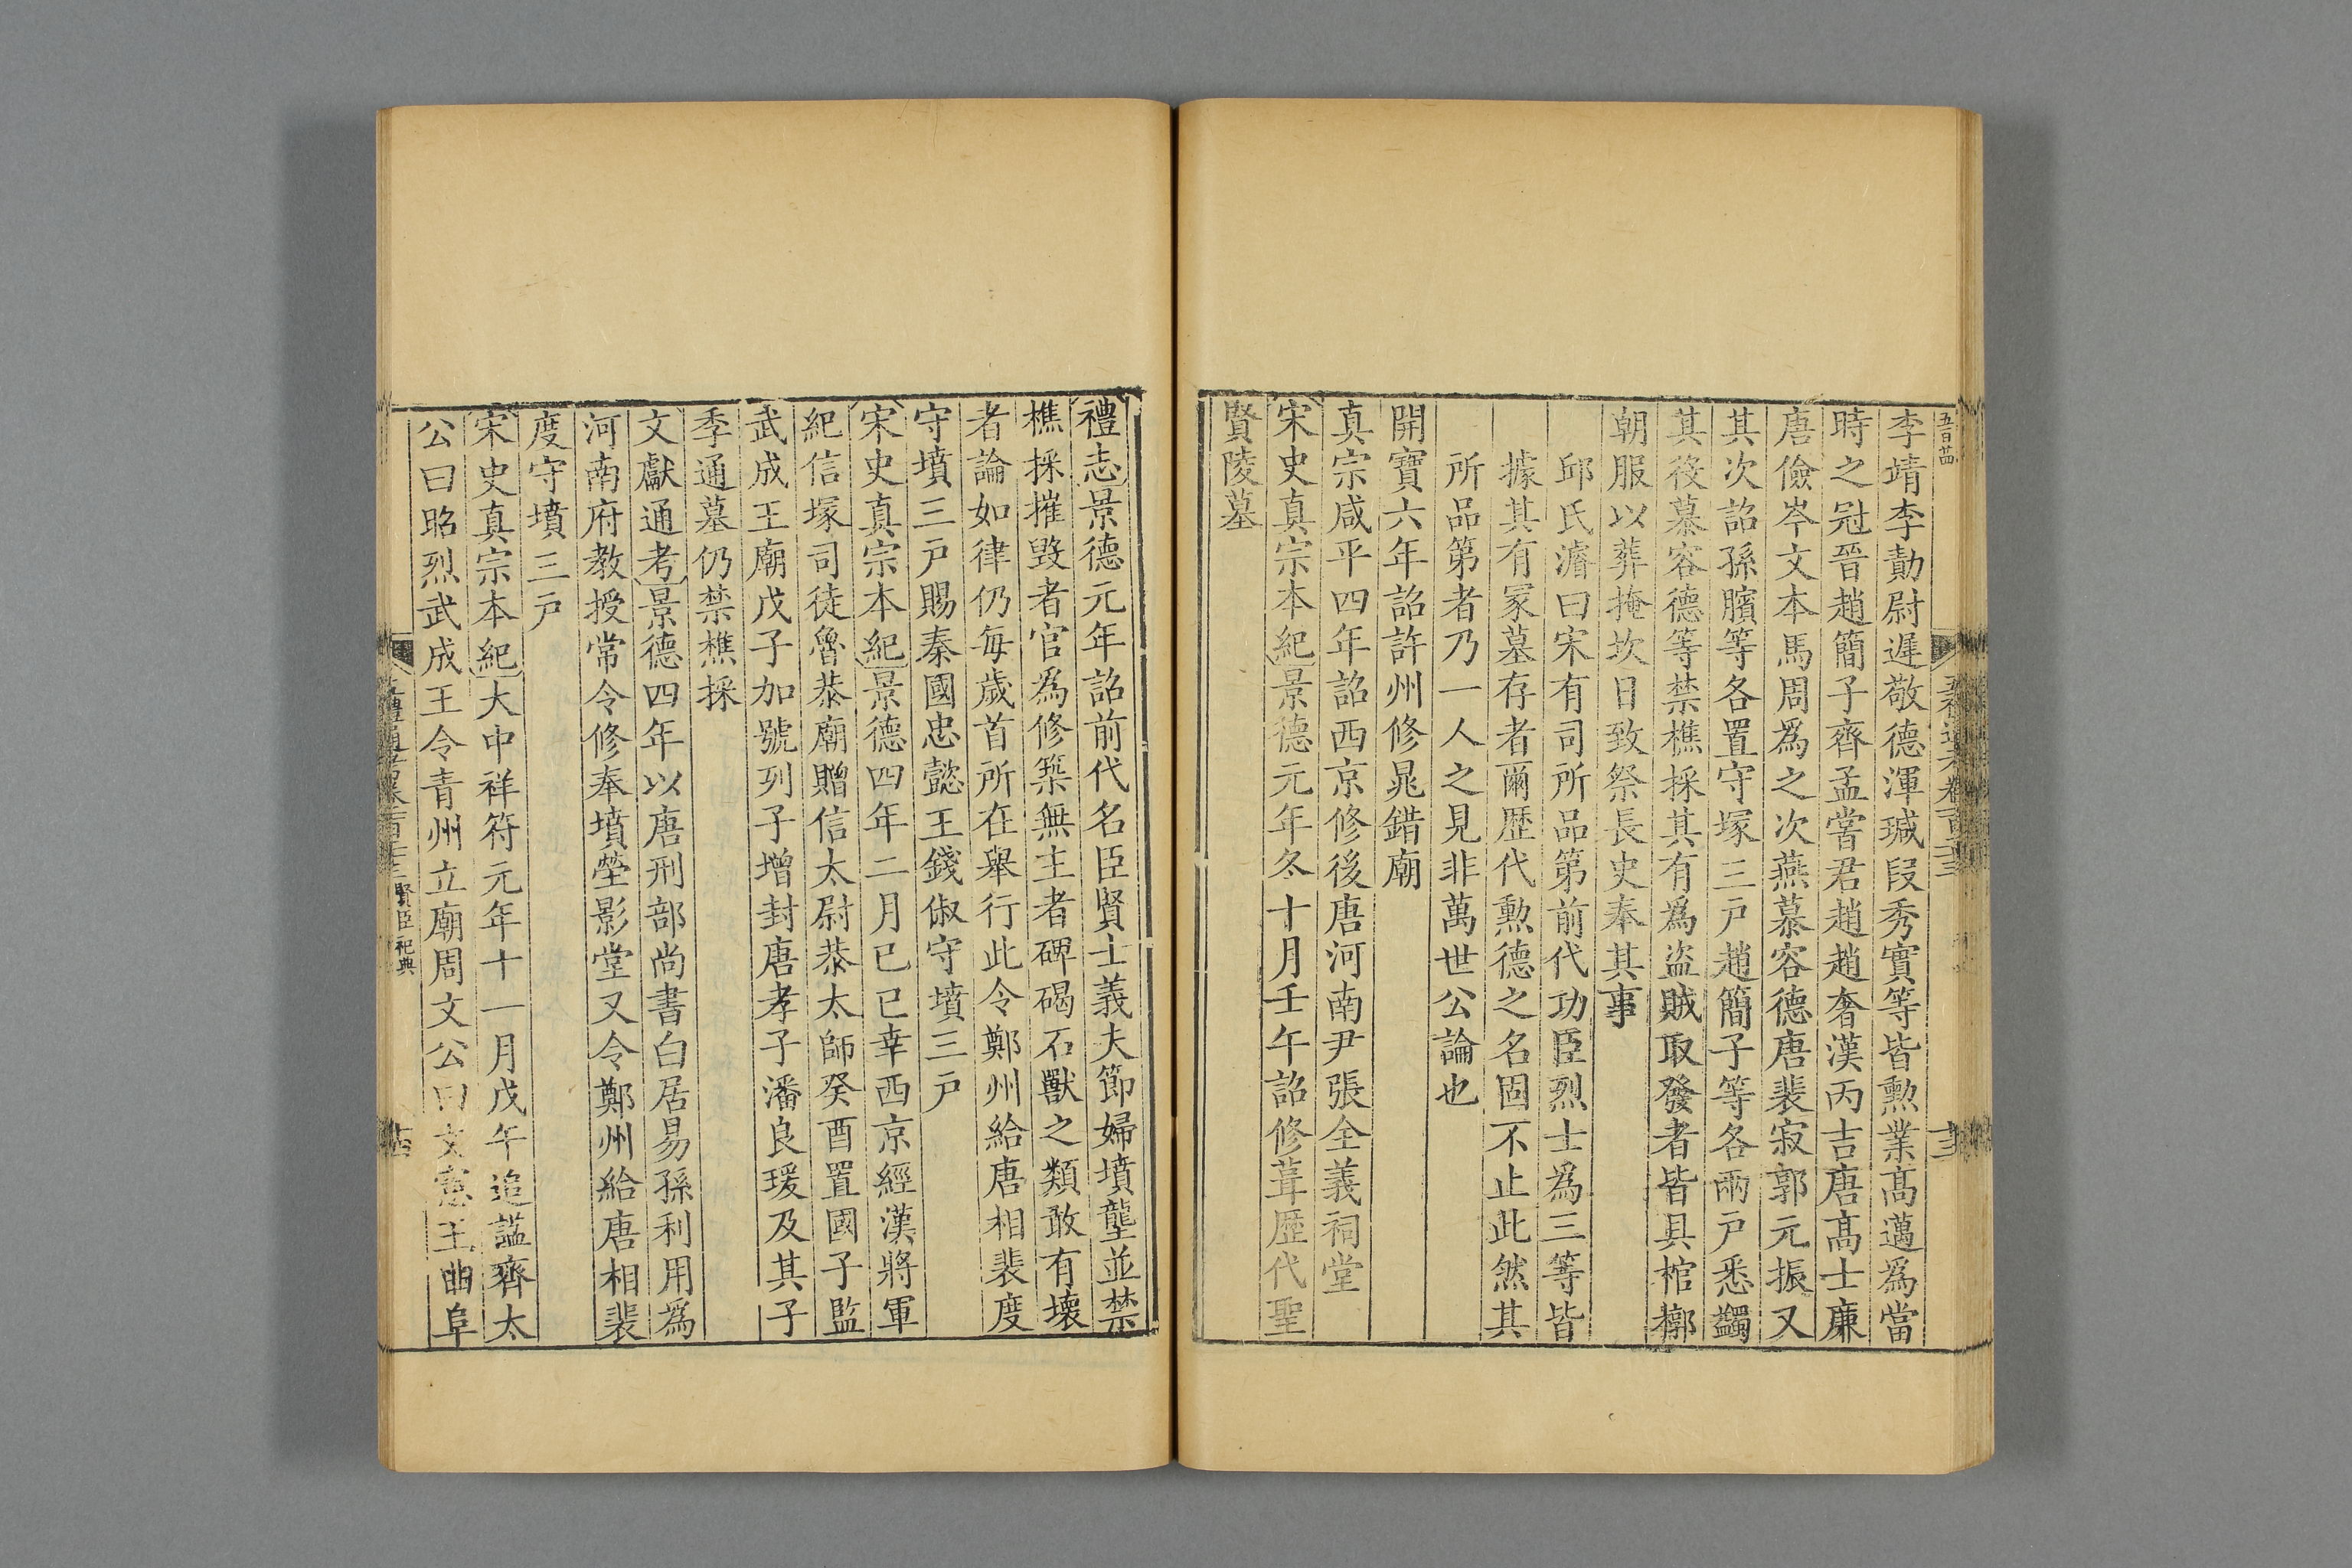 李靖李勣尉遲敬德渾瑊段秀實等皆勲業髙邁爲當
時之冠晉趙簡子齊孟嘗君趙趙奢漢丙吉唐髙士廉
唐儉岑文本馬周爲之次燕慕容德唐裴寂郭元振又
其次詔孫臏等各置守塚三戸趙簡子等各兩戸悉蠲
其役慕容德等禁樵採其有爲盗賊取發者皆具棺槨
朝服以葬掩坎日致祭長史奉其事
邱氏濬曰宋有司所品第前代功臣烈士爲三等皆
據其有冡墓存者爾歴代勲德之名固不止此然其
所品第者乃一人之見非萬世公論也
開寶六年詔許州修晁錯廟
真宗咸平四年詔西京修後唐河南尹張全義祠堂
宋史真宗本紀景德元年冬十月壬午詔修葺歴代聖
賢陵墓
禮志景德元年詔前代名臣賢士義夫節婦墳壟並禁
樵採摧毀者官爲修築無主者碑碣石獸之類敢有壞
者論如律仍每歲首所在舉行此令鄭州給唐相裴度
守墳三戸賜秦國忠懿王錢俶守墳三戸
宋史真宗本紀景德四年二月己巳幸西京經漢將軍
紀信塚司徒魯恭廟贈信太尉恭太師癸酉置國子監
武成王廟戊子加號列子增封唐孝子潘良瑗及其子
季通墓仍禁樵採
文獻通考景德四年以唐刑部尚書白居易孫利用爲
河南府教授常令修奉墳塋影堂又令鄭州給唐相裴
度守墳三戸
宋史真宗本紀大中祥符元年十一月戊午追諡齊太
公曰昭烈武成王令青州立廟周文公曰文憲王曲阜
賢臣祀典